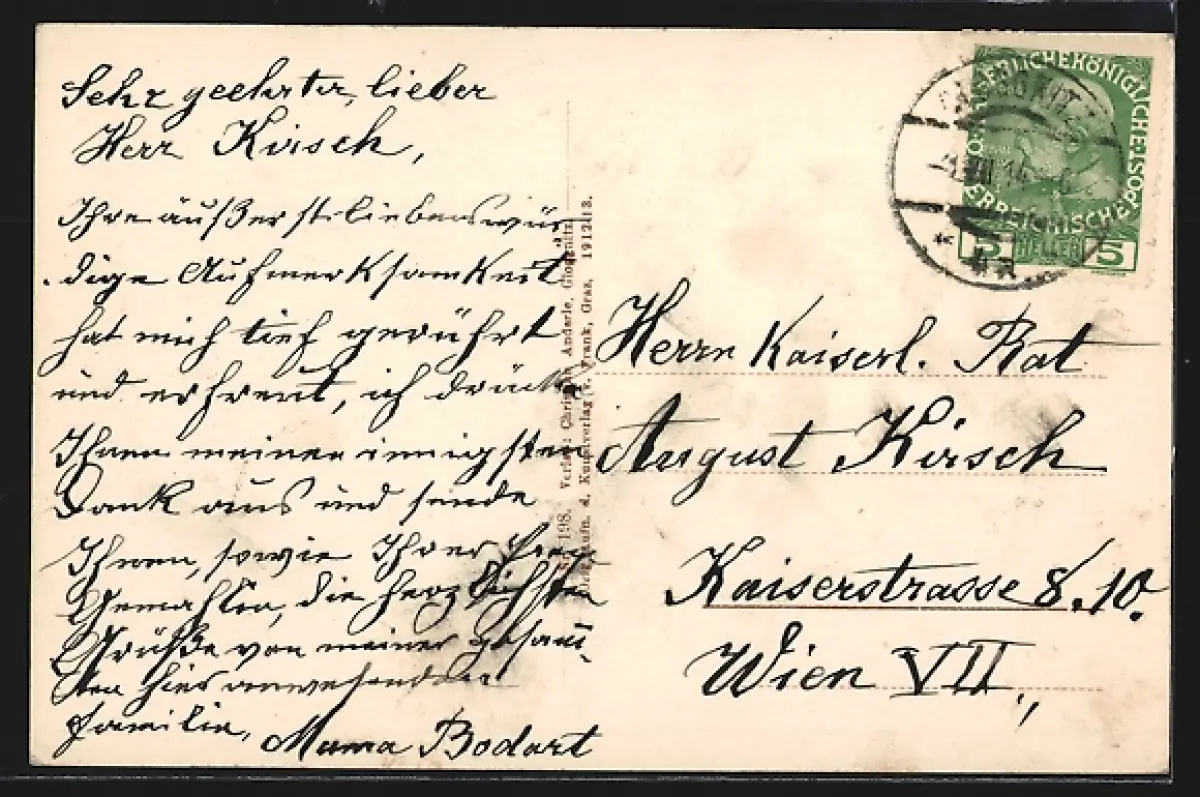 Sehr geehrter, lieber
Herr Kirsch,
Ihre äußerst liebenswür
dige Aufmerksamkeit
hat mich tief gerührt
und erfreut, ich drücke
Ihnen meinen innigsten
Dank aus und sende
Ihnen, sowie Ihrer Frau
Gemahlin, die herzlichsten
Grüße von meiner gesam̄
ten hier anwesenden
Familie, Mama Bodart
198. Verlag: Christ. Anderle, Gloggnitz
Aufn. d. Kunstverlag Frank, Graz. 1912/13.
KAISERLICHE KÖNIGLICHE POST
ÖSTERREICHISCHE
5 HELLER 5
VIII 14
Herrn Kaiserl. Rat
August Kirsch
Kaiserstrasse 8.10.
Wien VII,